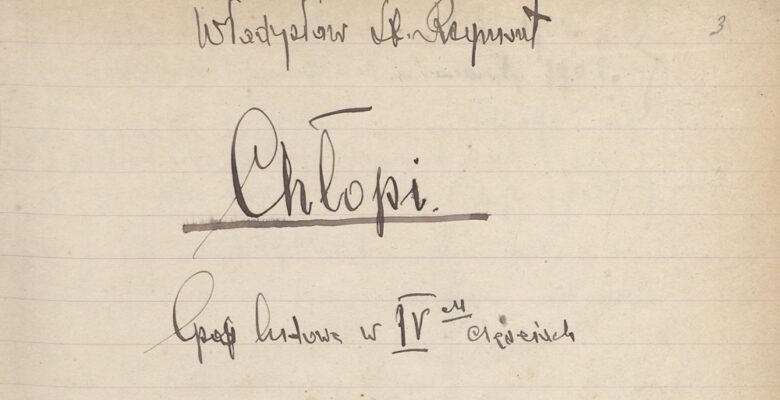 Władysław St. Reymont 3
Chłopi.
ludowa w IV częściach